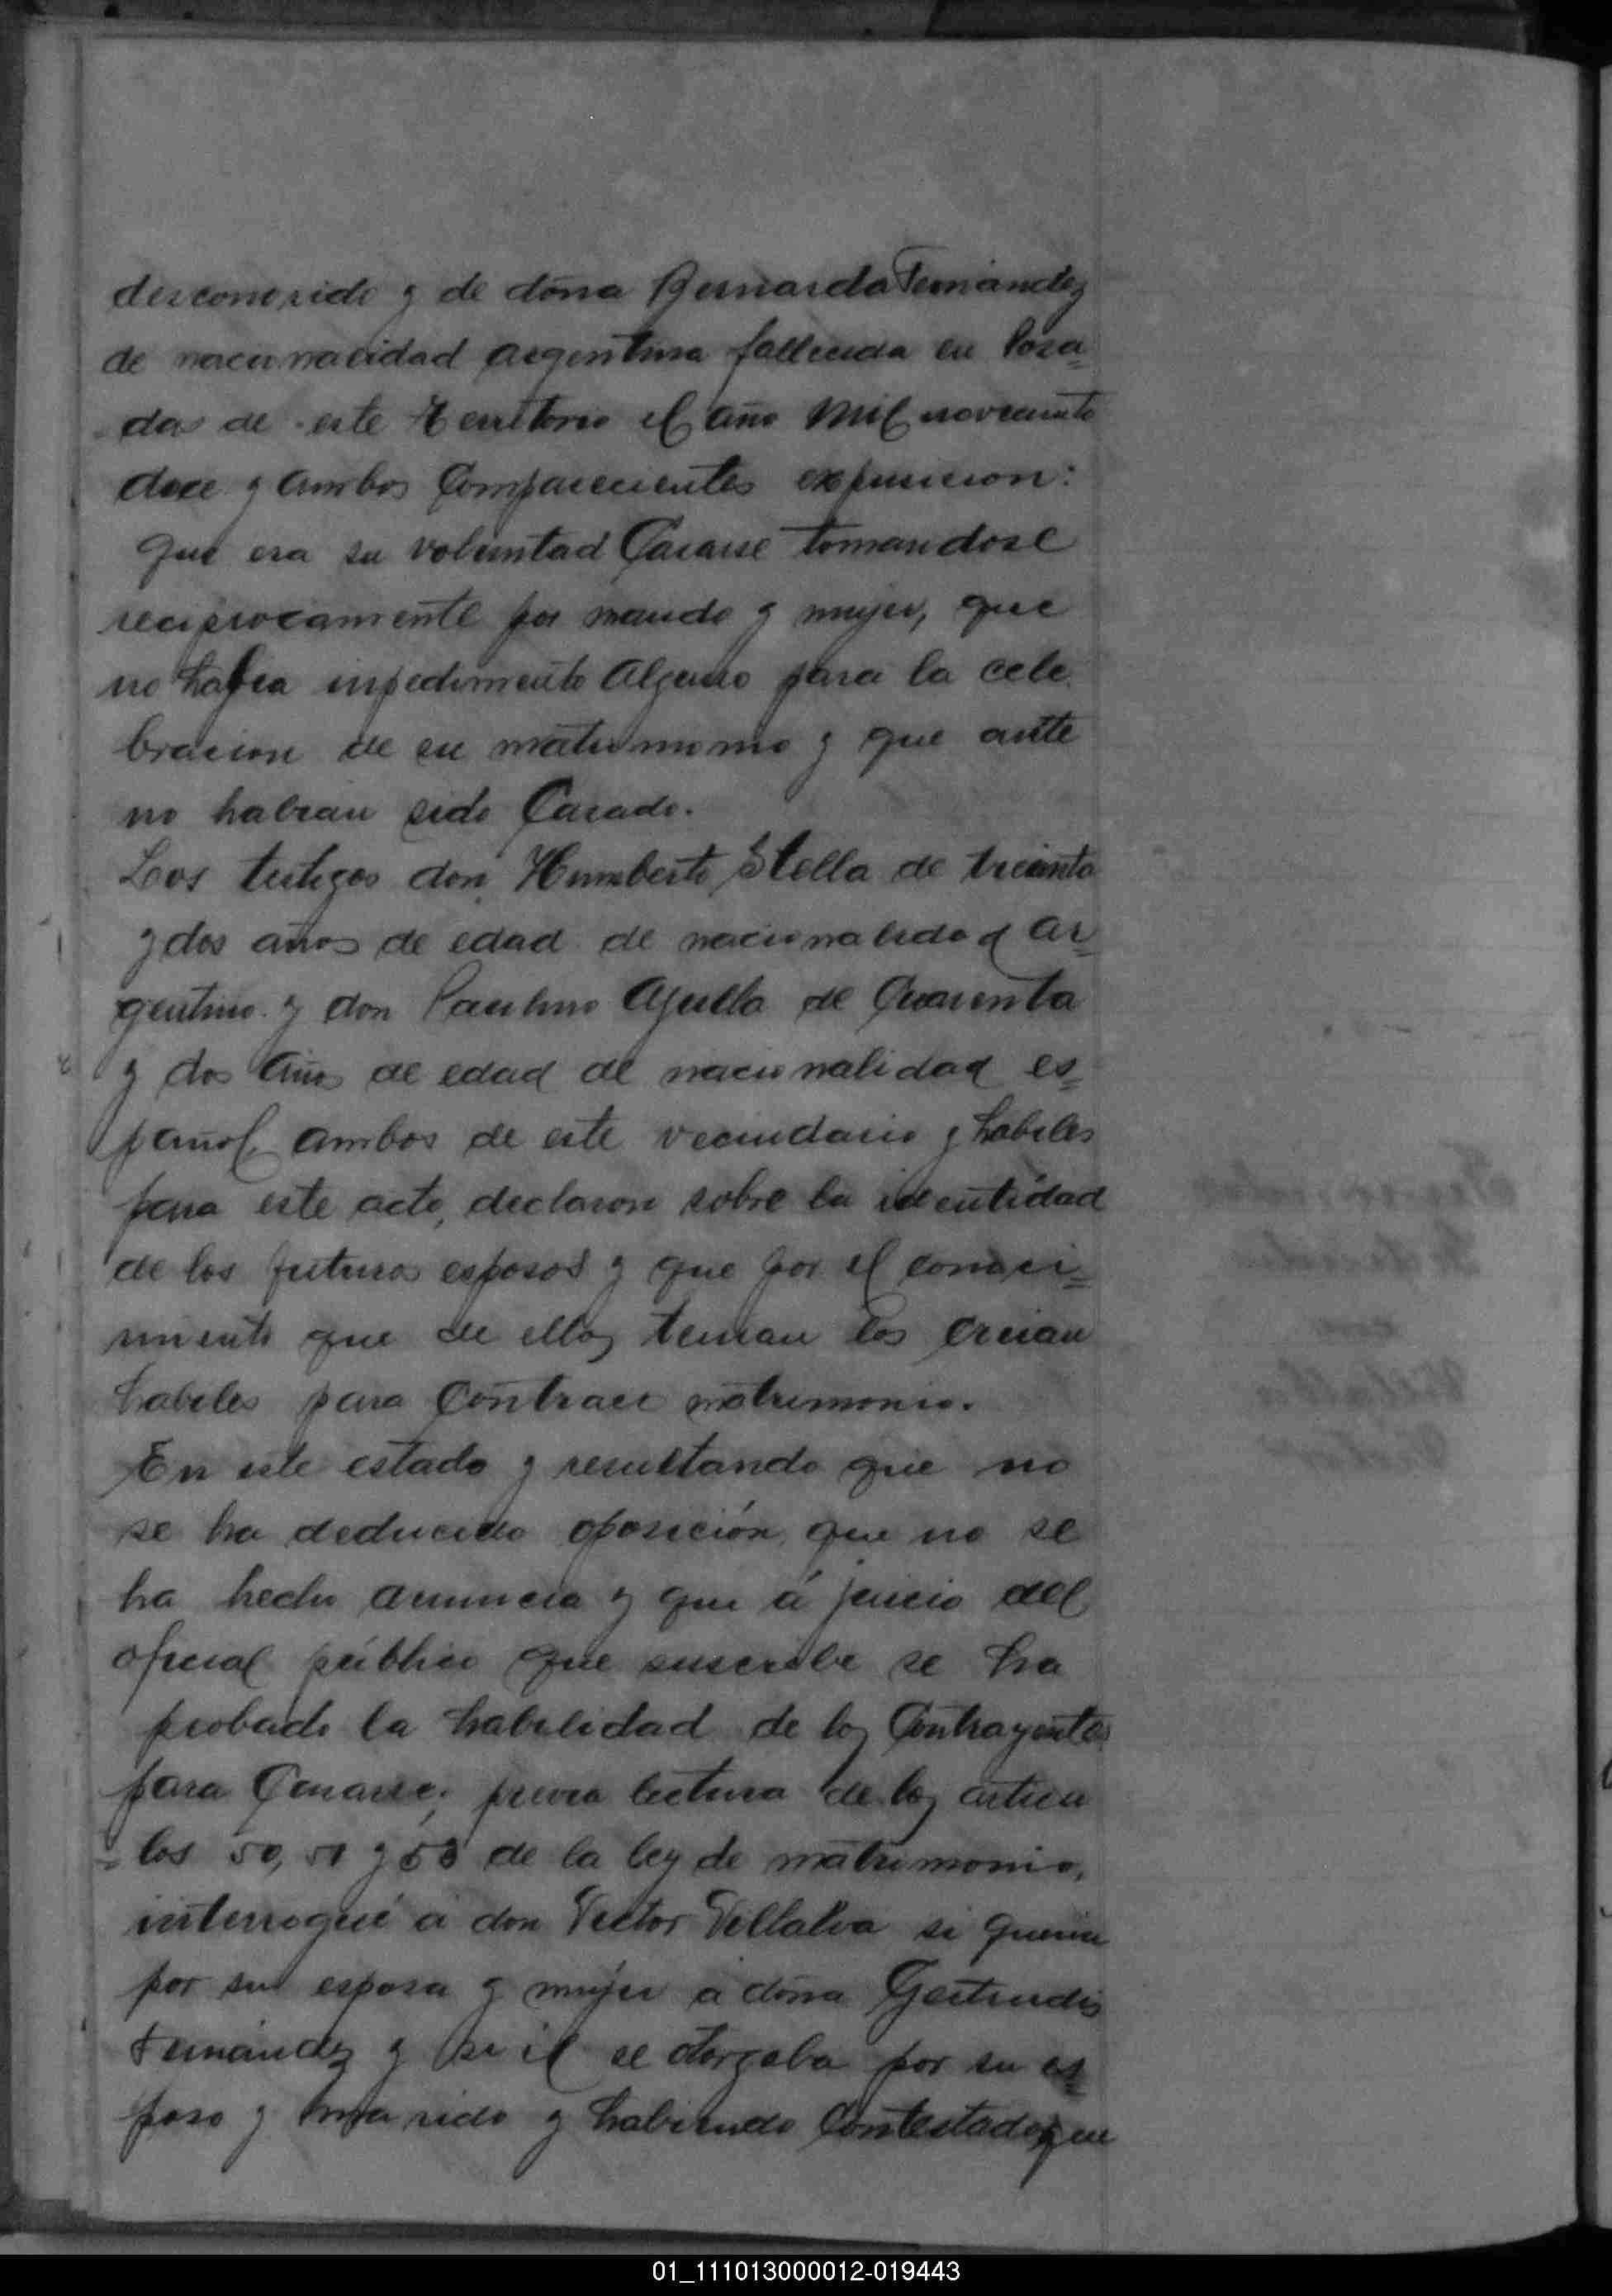 desconosido y de doña Bernarda Fernandez
de nacionalidad argentina fallecida en Posa=
=das de este territorio el año mil noveciento
doce y ambos comparecientes expusieron:
que era su voluntad Casarse tomandose
reciprocamente por marido y mujer, que
no habia inpedimento alguno para la cele
bracion de su matrimonio y que ante
no habian sido Casado.
Los testigos don Humberto Stella de treinta
y dos años de edad de nacionalidad ar=
gentino y don Paulino de Cuarenta
y dos años de edad de nacionalidad es=
pañol, ambos de este vecindario y habiles
para este acto, declaron sobre la identidad
de los futuros esposos y que por el conoci=
miento que de ellos tenian los creian
habiles para Contraer matrimonio.
En este estado y resultando que no
se ha deducido oposición, que no se
ha hecho denuncia y que á juicio del
oficial público que suscribe se ha
probado la habilidad de los Contrayentes
para Casarse; previa lectura de los articu
=los 50, 51 y 53 de la ley de matrimonio,
interrogué á don Victor Villalva si queria
por su esposa y mujer á doña Gertrudis
Fernández y si él se otorgaba por su es=
poso y marido y habiendo Contestado que
01_111013000012-019443